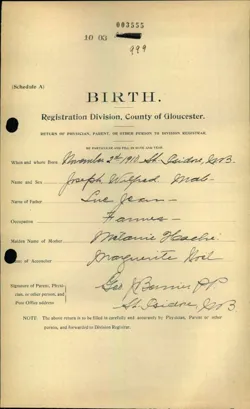 003555
10 03
999
(Schedule A)
BIRTH.
Registration Division, County of Gloucester.
RETURN OF PHYSICIAN, PARENT, OR OTHER PERSON TO DIVISION REGISTRAR.
When and where Born, November 2nd 1910 St. Isidore, N B
Name and Sex Joseph Wilfred Male
Name of Father Luc Jean
Occupation Farmer
Maiden Name of Mother Melanie Haché
of Accoucheur Marguerite Noel
Signature of Parent, Physician, or other person, and Post Office address
St. Isidore N B
NOTE. The above return is to be filled in carefully and accurately by Physician, Parent or other person, and forwarded to Division Registrar.